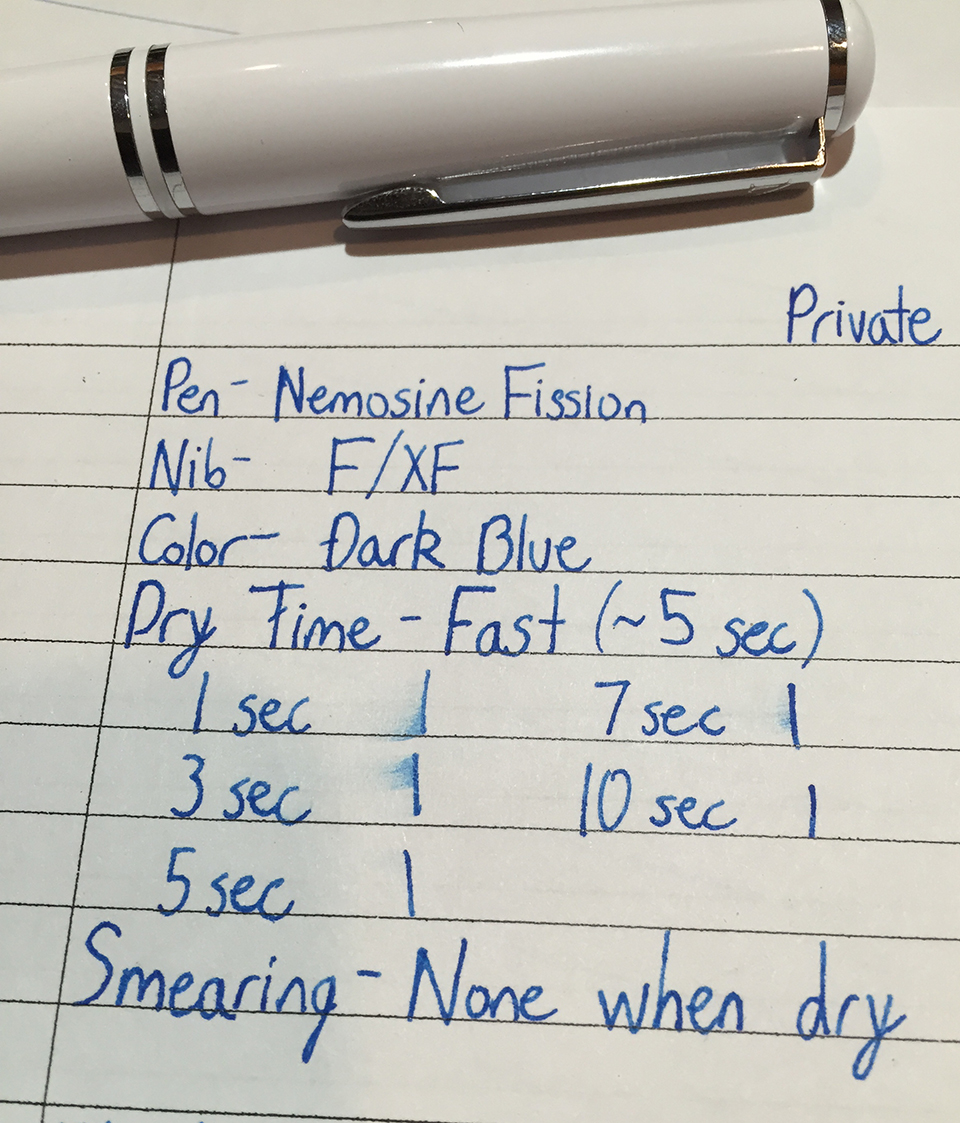 Private
Pen- Nemosine Fission
Nib- F/XF
Color- Dark Blue
Dry Time - Fast (~5 sec)
1 sec 1 7 sec 1
3 sec 1 10 sec 1
5 sec 1
Smearing - None when dry